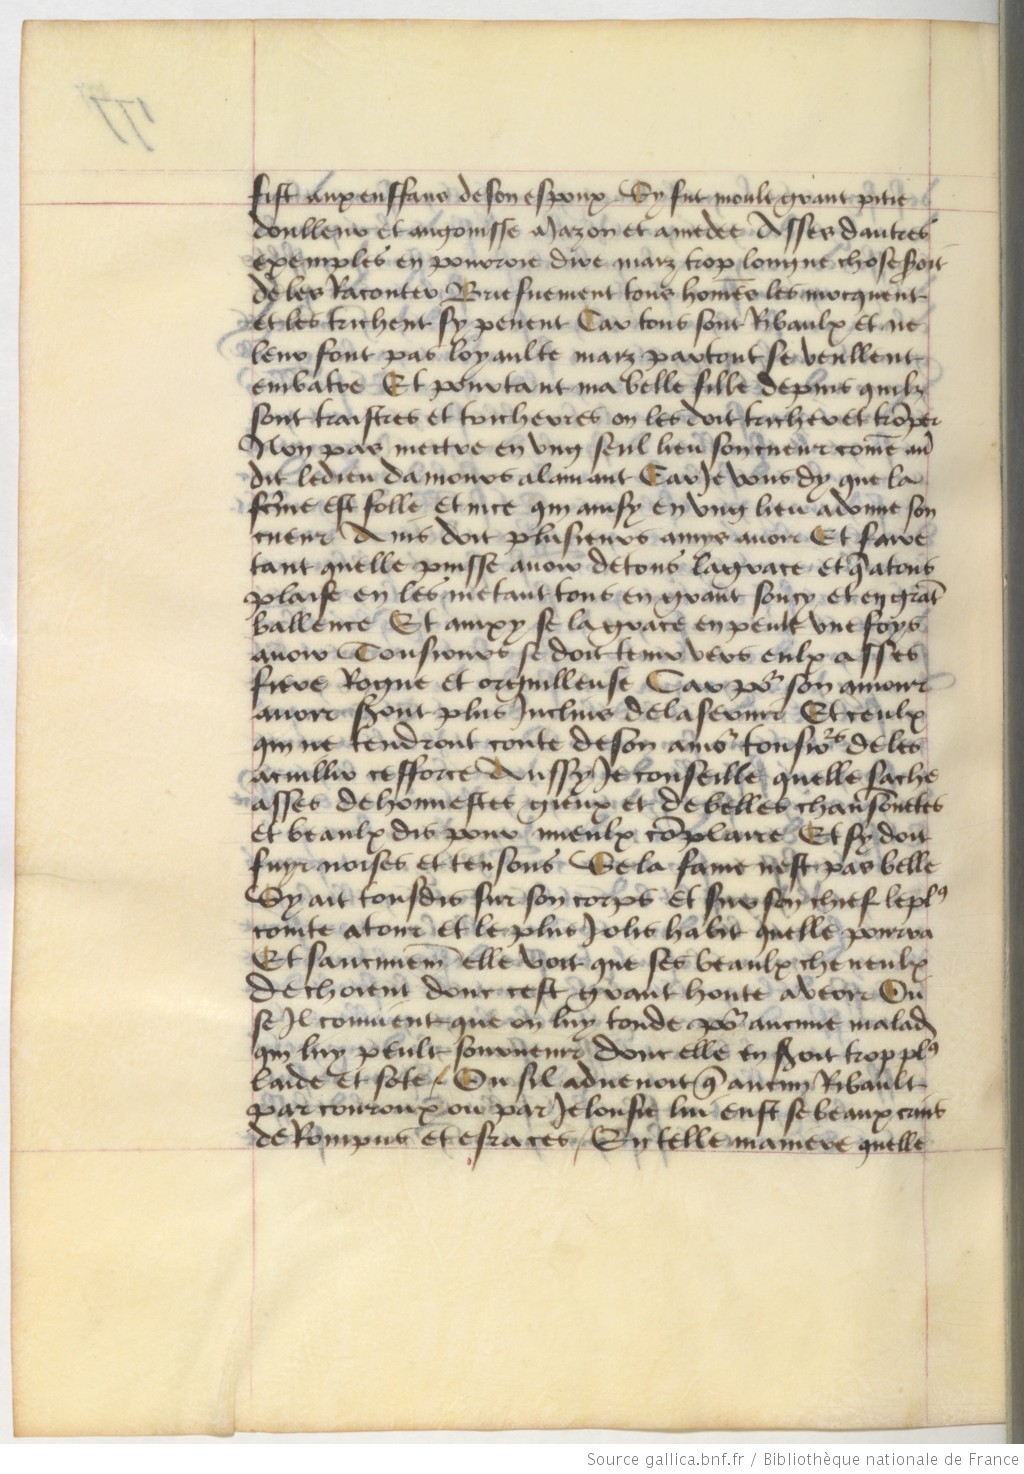 fist aux enffans de son espoux Sy fut moult grant pitie
doulleur et angoisse a Jazon et a medee Asses dautres
exemples en pourroie dire maiz trop longue chose seroit
de les Raconter Briefuement tous homes les mocquent
et les trichent sy peuent Car tous sont Ribaulx et ne
leur font pas loyaulte maiz partout se veullent
embatre Et pourtant ma belle fille depuis quilz
sont traistres et tricheres on les doit tricher et troper
Non pas mettre en vng seul lieu son cueur come au
dit le dieu damours a lamant Car Je vous dy que la
feme est folle et nice qui ainsy en vng lieu adonne son
cueur Ains doit plusieurs amys auoir Et faire
tant quelle puisse auoir de tous la grace et q a tous
plaise en les metant tous en grant soucy et en grat
ballence Et ainxy se la grace en peult vne foys
auoir Tousiours se doit tenir vers eulx asses
fiere Rogue et orguilleuse Car por son amour
auoir seront plus Inclins de la seruir Et ceulx
qui ne tendront conte de son amor tousiors de les
acuillir cefforce Aussy Je conseille quelle sache
asses de honnestes gieux et de belles chansonetes
et beaulx dis pour mieulx coplaire Et sy doit
fuyr noises et tensons Se la fame nest pas belle
Sy ait tousdis sur son corps et sur son chief le pl9
cointe atour et le plus Jolis habit quelle pourra
Et saucunem elle voit que ses beaulx cheueulx
dechoient donc cest grant honte a veoir Ou
se Il conuient que on luy tonde por aucune malad
qui luy peult souruenir donc elle en seroit trop pl9
laide et sote / Ou sil aduenoit q aucun Ribault
par couroux ou par Jelousie lui eust se beaux crins
de Rompus et esraces / En telle maniere quelle
177
Source gallica.bnf.fr / Bibliothèque nationale de France